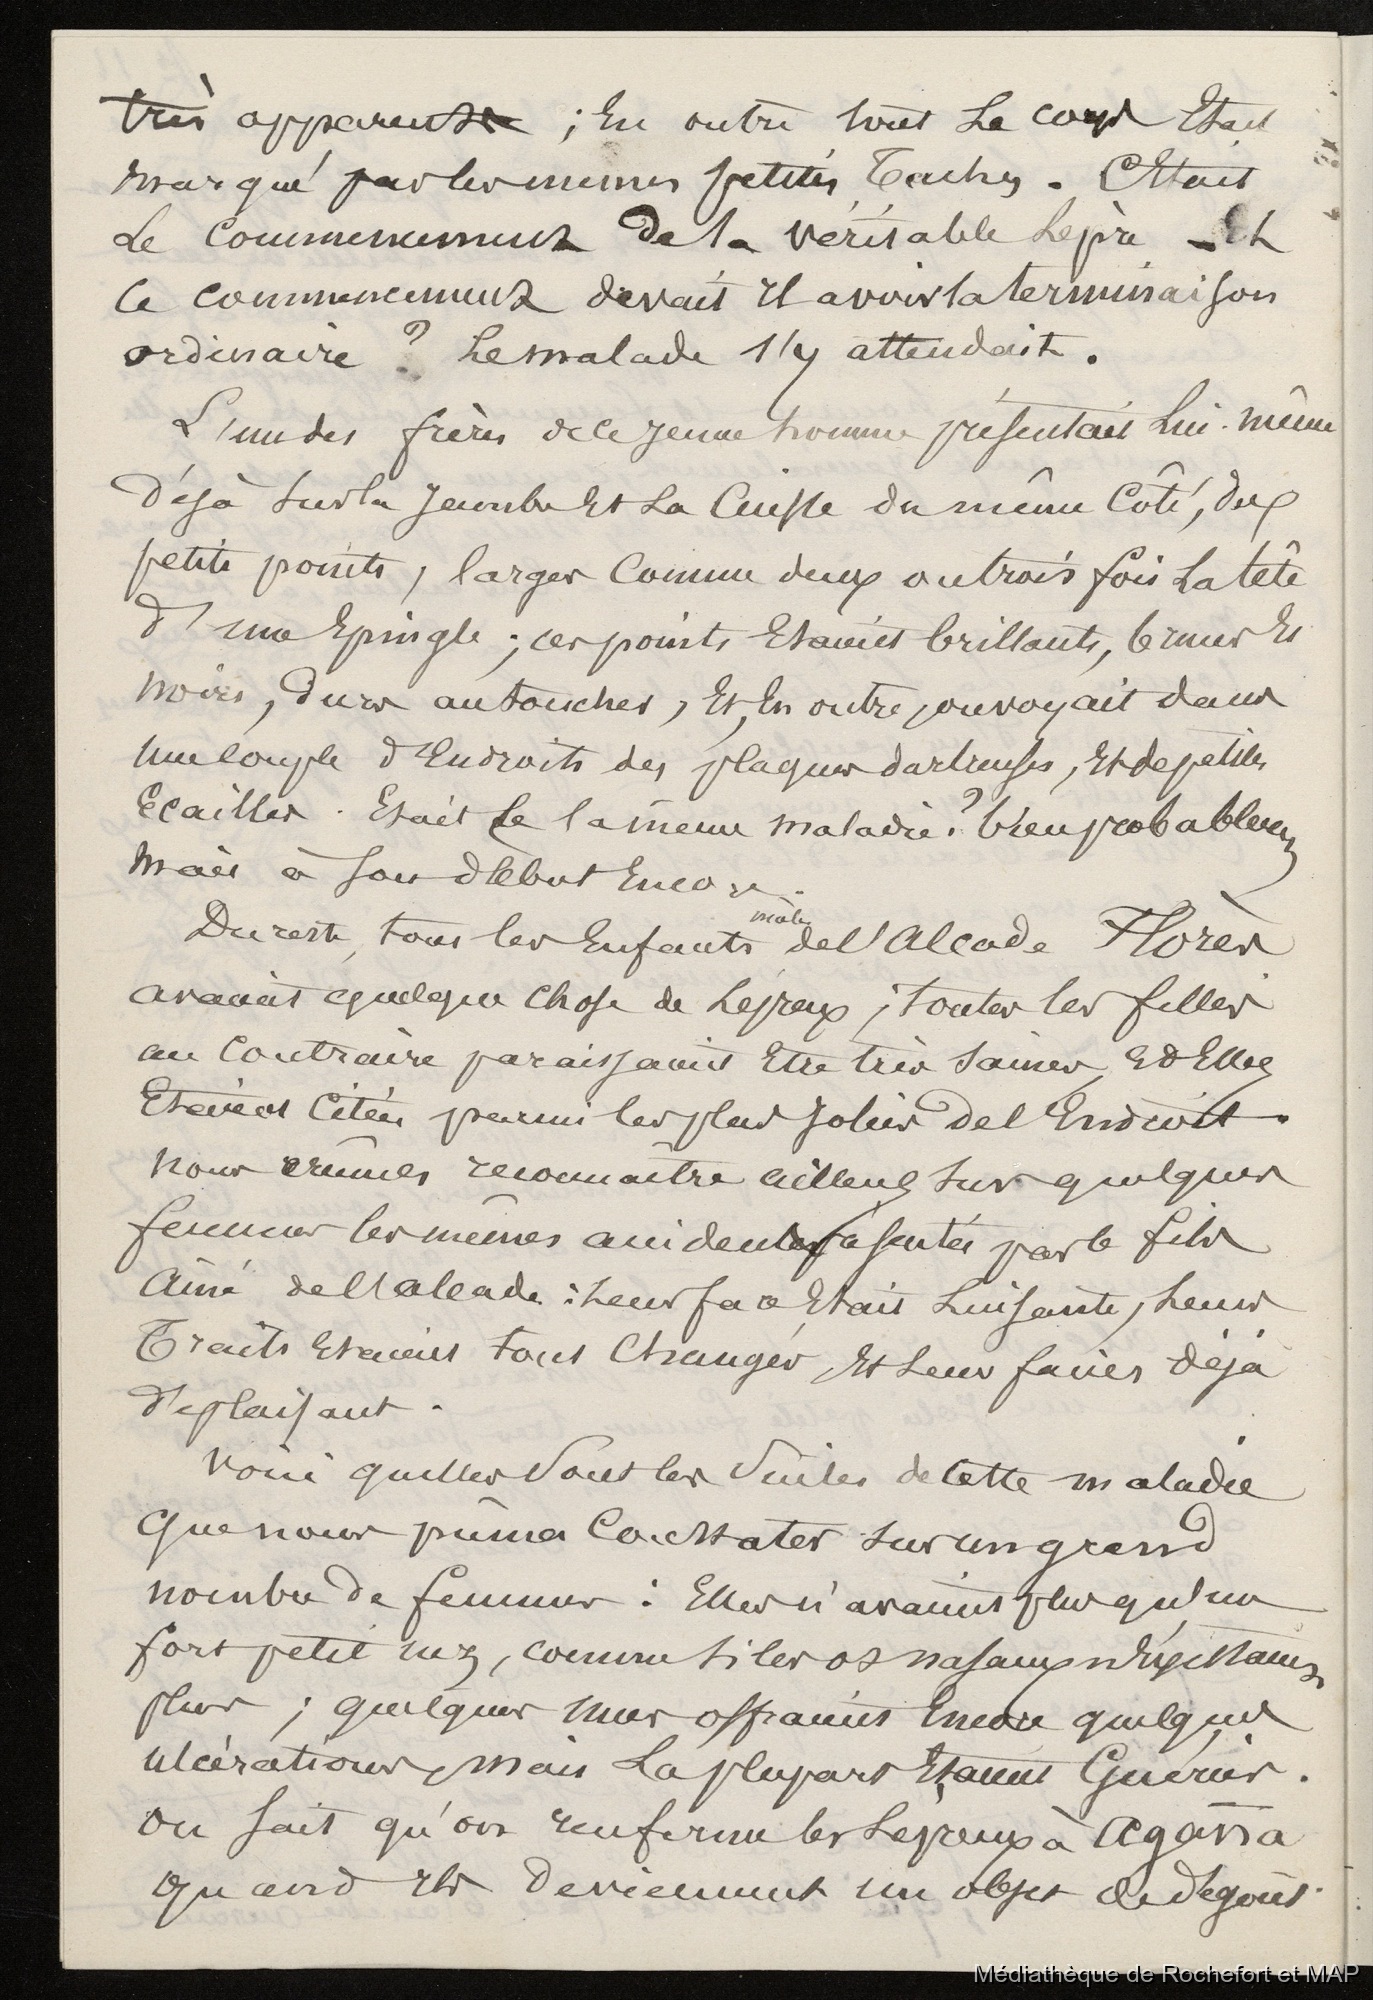 très apparente ; En outre tout Le corps Etait
marqué par les mêmes petites Taches. C'Etait
Le Commencement de la véritable Lèpre _ Et
Ce commencement devait Il avoir la terminaison
ordinaire ? Le malade s'y attendait.
L'un des frères de ce jeune homme présentait Lui-même
déjà sur la Jambe Et La Cuisse du même Côté, des
petits points, larges Comme deux ou trois fois La tête
d'une Epingle ; ces points Etaient brillants, bruns Et
noirs, durs au toucher, Et, En outre, on voyait dans
une couple d'Endroits des plaques dartreuses, Et de petites
Ecailles. Etait Ce la même maladie ? bien probablement
Mais à son début Encore.
Du reste, tous les Enfants mâles de l'Alcade Florès
avaient quelque chose de Lépreux ; toutes les filles
au Contraire paraissaient Etre très saines, Et Elles
Etaient Citées parmi les plus Jolies de l'Endroit.
nous crûmes reconnaître ailleurs sur quelques
femmes les mêmes accidents présentés par le fils
Aîné de l'alcade : Leur face Etait Luisante, Leurs
Traits Etaient tous Changés, Et Leur faciès déjà
déplaisant.
Voici quelles Sont les Suites de Cette maladie
Que nous pûmes Constater sur un grand
nombre de femmes : Elles n'avaient plus qu'un
fort petit nez, comme si les os nasaux n'Existaient
plus ; quelques unes offraient Encore quelques
ulcérations, Mais La plupart Etaient Guéries.
On sait qu'on renferme les Lépreux à Agaña
quand Ils deviennent un objet de dégoût
Médiathèque de Rochefort et MAP